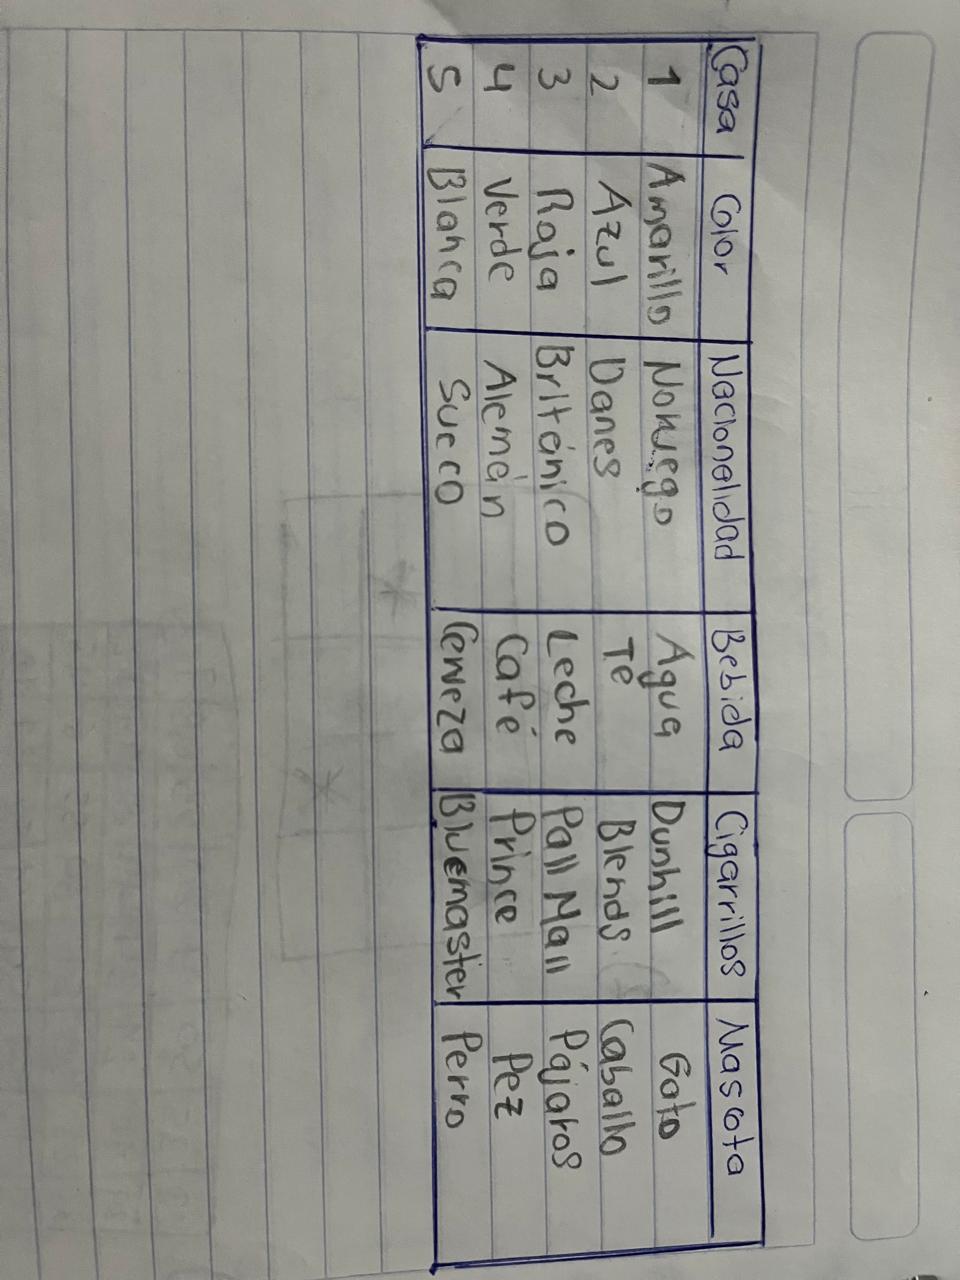 Casa Color Nacionalidad Bebida Cigarrillos Mascota
1 Amarillo Noruego Agua Dunhill Gato
2 Azul Danes Té Blends Caballo
3 Roja Británico Leche Pall Mall Pájaros
4 Verde Alemán Café Prince Pez
5 Blanca Sueco Cerveza Bluemaster Perro